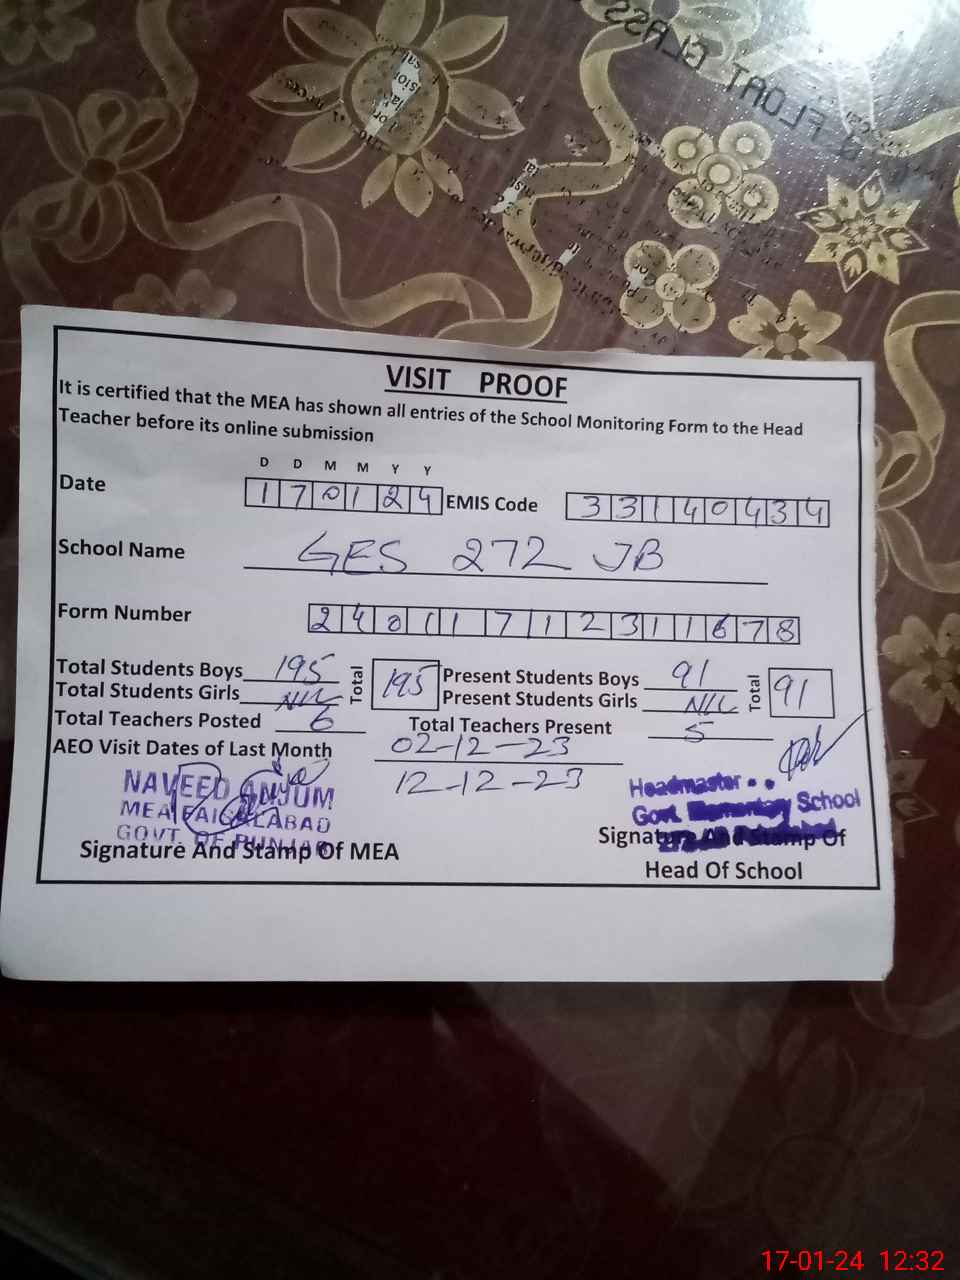 FLOAT GLASS
VISIT PROOF
It is certified that the MEA has shown all entries of the School Monitoring Form to the Head
Teacher before its online submission
D D M M Y Y
Date 1 7 0 1 2 4 EMIS Code 3 3 1 4 0 4 3 4
School Name GES 272 JB
Form Number 2 4 0 1 1 7 1 2 3 1 1 6 7 8
Total Students Boys 195 Total 195 Present Students Boys 91 Total 91
Total Students Girls NIL Present Students Girls NIL
Total Teachers Posted 6 Total Teachers Present 5
AEO Visit Dates of Last Month 02-12-23
12-12-23
NAVEED ANJUM
MEA FAISALABAD
GOVT. OF PUNJAB
Signature And Stamp Of MEA
Headmaster
Govt. Elementary School
Signature And Stamp Of
Head Of School
17-01-24 12:32